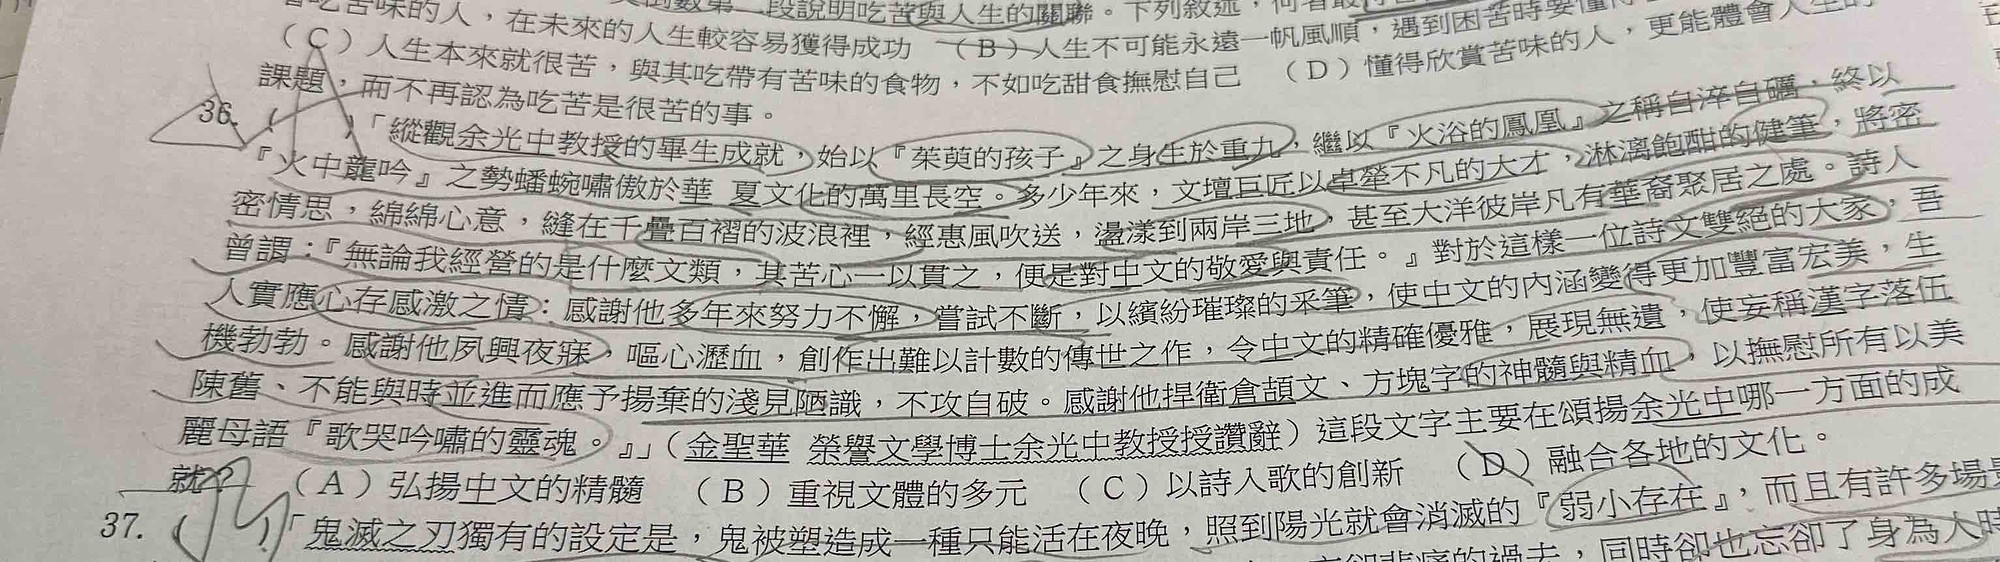 段說明吃苦與人生的關聯。下列敘述，何者最
吃苦味的人，在未來的人生較容易獲得成功 （B）人生不可能永遠一帆風順，遇到困苦時要懂得
（C）人生本來就很苦，與其吃帶有苦味的食物，不如吃甜食撫慰自己 （D）懂得欣賞苦味的人，更能體會人生的
課題，而不再認為吃苦是很苦的事。
36. （ ）「縱觀余光中教授的畢生成就，始以『茱萸的孩子』之身生於重九，繼以『火浴的鳳凰』之稱自淬自礪，終以
『火中龍吟』之勢蟠蜿嘯傲於華 夏文化的萬里長空。多少年來，文壇巨匠以卓犖不凡的大才，淋漓飽酣的健筆，將密
密情思，綿綿心意，縫在千疊百褶的波浪裡，經惠風吹送，盪漾到兩岸三地，甚至大洋彼岸凡有華裔聚居之處。詩人
曾謂：『無論我經營的是什麼文類，其苦心一以貫之，便是對中文的敬愛與責任。』對於這樣一位詩文雙絕的大家，吾
人實應心存感激之情：感謝他多年來努力不懈，嘗試不斷，以繽紛璀璨的采筆，使中文的內涵變得更加豐富宏美，生
機勃勃。感謝他夙興夜寐，嘔心瀝血，創作出難以計數的傳世之作，令中文的精確優雅，展現無遺，使妄稱漢字落伍
陳舊、不能與時並進而應予揚棄的淺見陋識，不攻自破。感謝他捍衛倉頡文、方塊字的神髓與精血，以撫慰所有以美
麗母語『歌哭吟嘯的靈魂。』」（金聖華 榮譽文學博士余光中教授授讚辭）這段文字主要在頌揚余光中哪一方面的成
就？ （A）弘揚中文的精髓 （B）重視文體的多元 （C）以詩入歌的創新 （D）融合各地的文化。
37. （ ）「鬼滅之刃獨有的設定是，鬼被塑造成一種只能活在夜晚，照到陽光就會消滅的『弱小存在』，而且有許多場景
忘卻悲痛的過去，同時卻也忘卻了身為人時